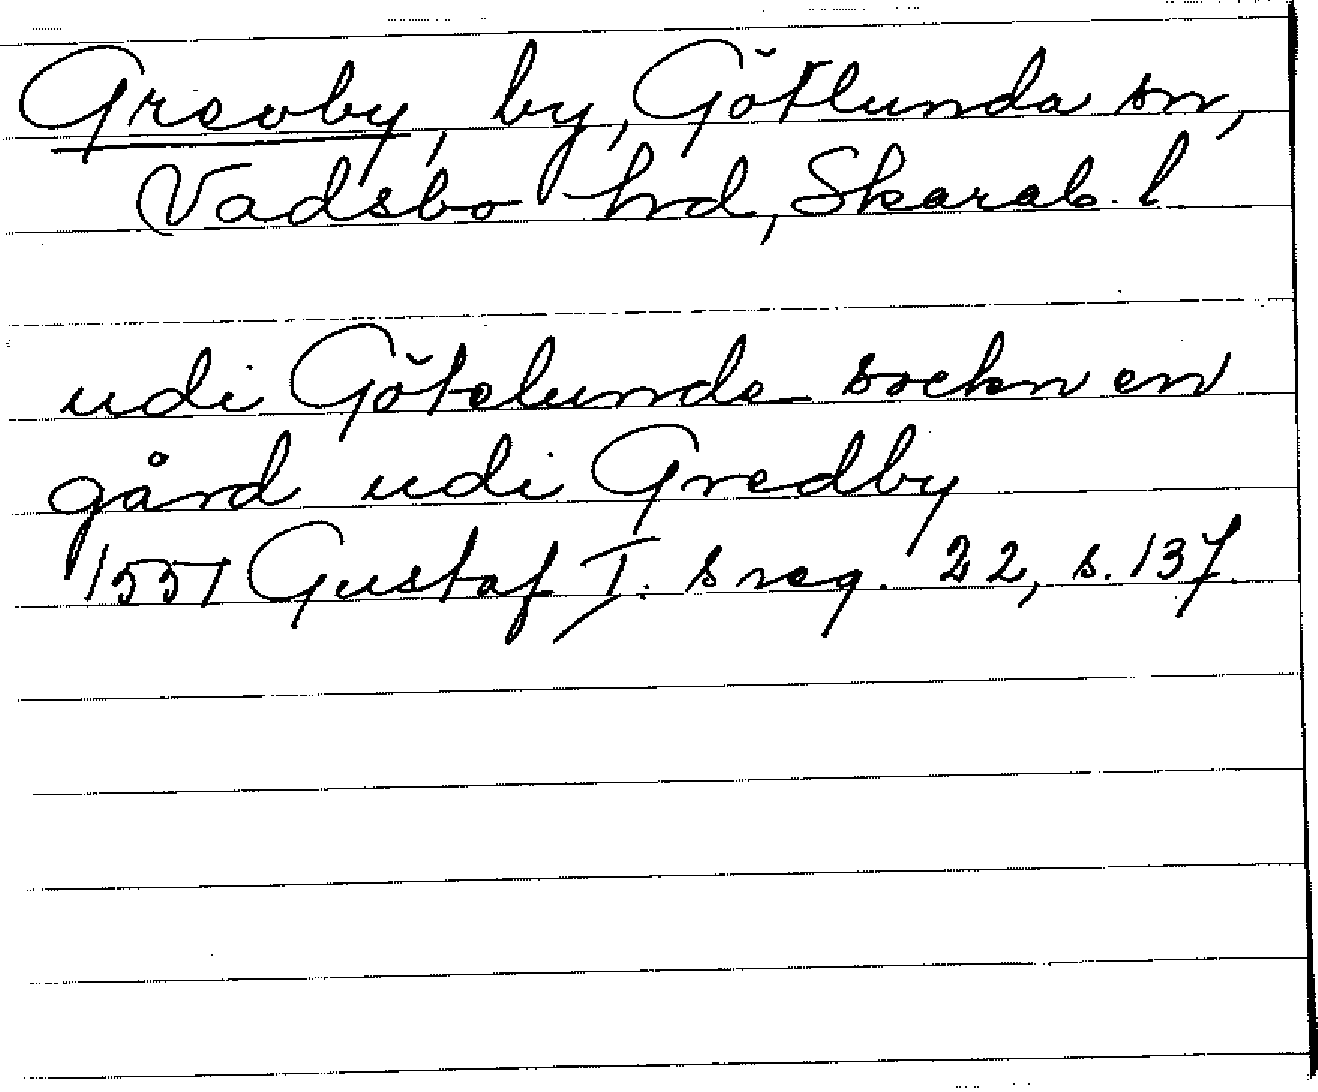 Greoby, by, Götlunda sn,
Vadsbo hrd, Skarab. l
udi Götelunde sockn en
gård udi Gredby
1551 Gustaf I. s reg. 22, s. 137.